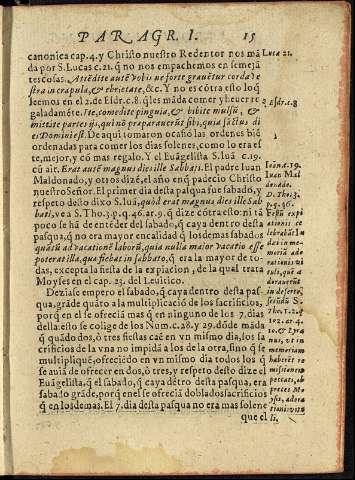 PARAGR. I. 15
canonica cap. 4. y Christo nuestro Redentor nos mã
da por S. Lucas c. 21. q̃ no nos empachemos en semejã
tes cosas. Attẽdite autẽ vobis ne forte grauẽtur corda ve
stra in crapula, & ebrietate, &c. Y no es cõtra esto loq̃
leemos en el 2. de Esdr. c. 8. q̃ les mãda comer y beuer re
galadamẽte. Ite, comedite pinguia, & bibite mulsũ, &
mittite partes ijs, qui nõ præparauerũt sibi, quia sãctus di
es Domini est. De aqui tomaron ocasiõ las ordenes biẽ
ordenadas para comer los dias solenes, como lo era es
te, mejor, y cõ mas regalo. Y el Euãgelista S. Iuã c. 19.
cũ ait. Erat autẽ magnus dies ille Sabbati. El padre Iuan
Maldonado, y otros dizẽ, el año enq̃ padecio Christo
nuestro Señor. El primer dia desta pasqua fue sabado, y
respeto desto dixo S. Iuã, quòd erat magnus dies ille Sab
bati, ve a S. Tho. 3. p. q. 46. ar. 9. q̃ dize cõtra esto: ni tã
poco se hà de entẽder del sabado, q̃ caya dentro desta
pasqua, q̃ no era mayor en calidad q̃ los demas sabados
quãtũ ad vacationẽ laborũ, quia nulla maior vacatio esse
poterat illa, quæ fiebat in sabbato, q̃ era la mayor de to-
das, excepta la fiesta de la expiacion, de la qual trata
Moyses en el cap. 23. del Leuitico.
Deziase empero el sabado, q̃ caya dentro desta pas-
qua, grãde quãto a la multiplicació de los sacrificios,
porq̃ en el se ofreciã mas q̃ en ninguno de los 7. dias
della: esto se colige de los Num. c. 28. y 29. dõde mãda
q̃ quãdo dos, ò tres fiestas caẽ en vn mismo dia, los sa
crificios de la vna no impidã a los de la otra, sino q̃ se
multipliquẽ, ofreciẽdo en vn mismo dia todos los q̃
se auiã de ofrecer en dos, ò tres, y respeto desto dize el
Euãgelista, q̃ el sabado, q̃ caya dẽtro desta pasqua, era
sabado grãde, porq̃ enel se ofreciã doblados sacrificios
q̃ en los demas. El 7. dia desta pasqua no era mas solene
que el
Luca 21.
2. Esdr. c. 8
Ioãn. 19.
Iuan Mal
donado.
D. Tho. 3.
p. q. 46.
Festũ expi
ationis ce
lebrabãt Iu
dæi in me-
moriã ado
rationis vi
tuli, quẽ a
dorauerũt
in deserto,
secũdũ S.
Tho. 1. 2. q
102. ar. 4.
10. & Lyra
nus, vel in
memoriã
habere ro
misionem
peccati, ab
preces Mo
ysis, adora
tionis vitu
li.